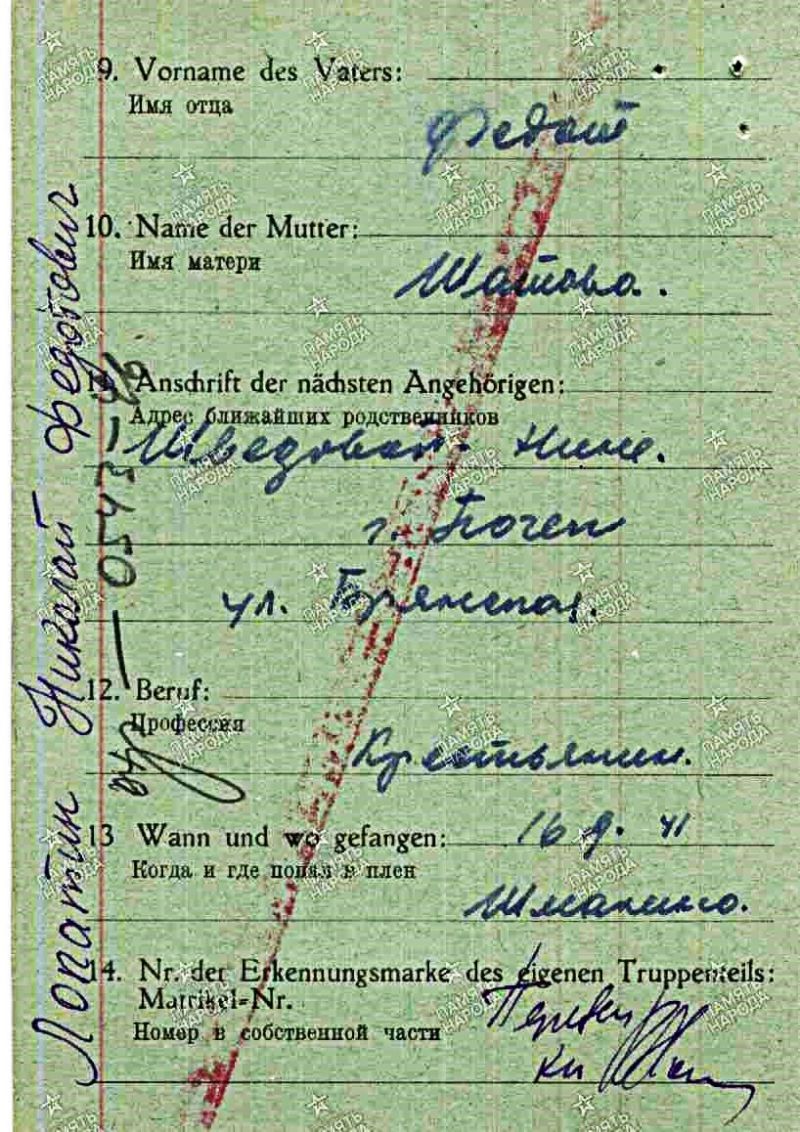 9. Vorname des Vaters:
Имя отца
Федот
10. Name der Mutter:
Имя матери
Шатова.
11. Anschrift der nächsten Angehörigen:
Адрес ближайших родственников
Шведовой Нине.
г. Почеп
ул. Брянская.
12. Beruf:
Профессия
Крестьянин.
13 Wann und wo gefangen:
16 9. 41
Когда и где попал в плен
14. Nr. der Erkennungsmarke des eigenen Truppenteils:
Matrikel=Nr.
Номер в собственной части
Лопатин Николай Федотович
ПАМЯТЬ НАРОДА